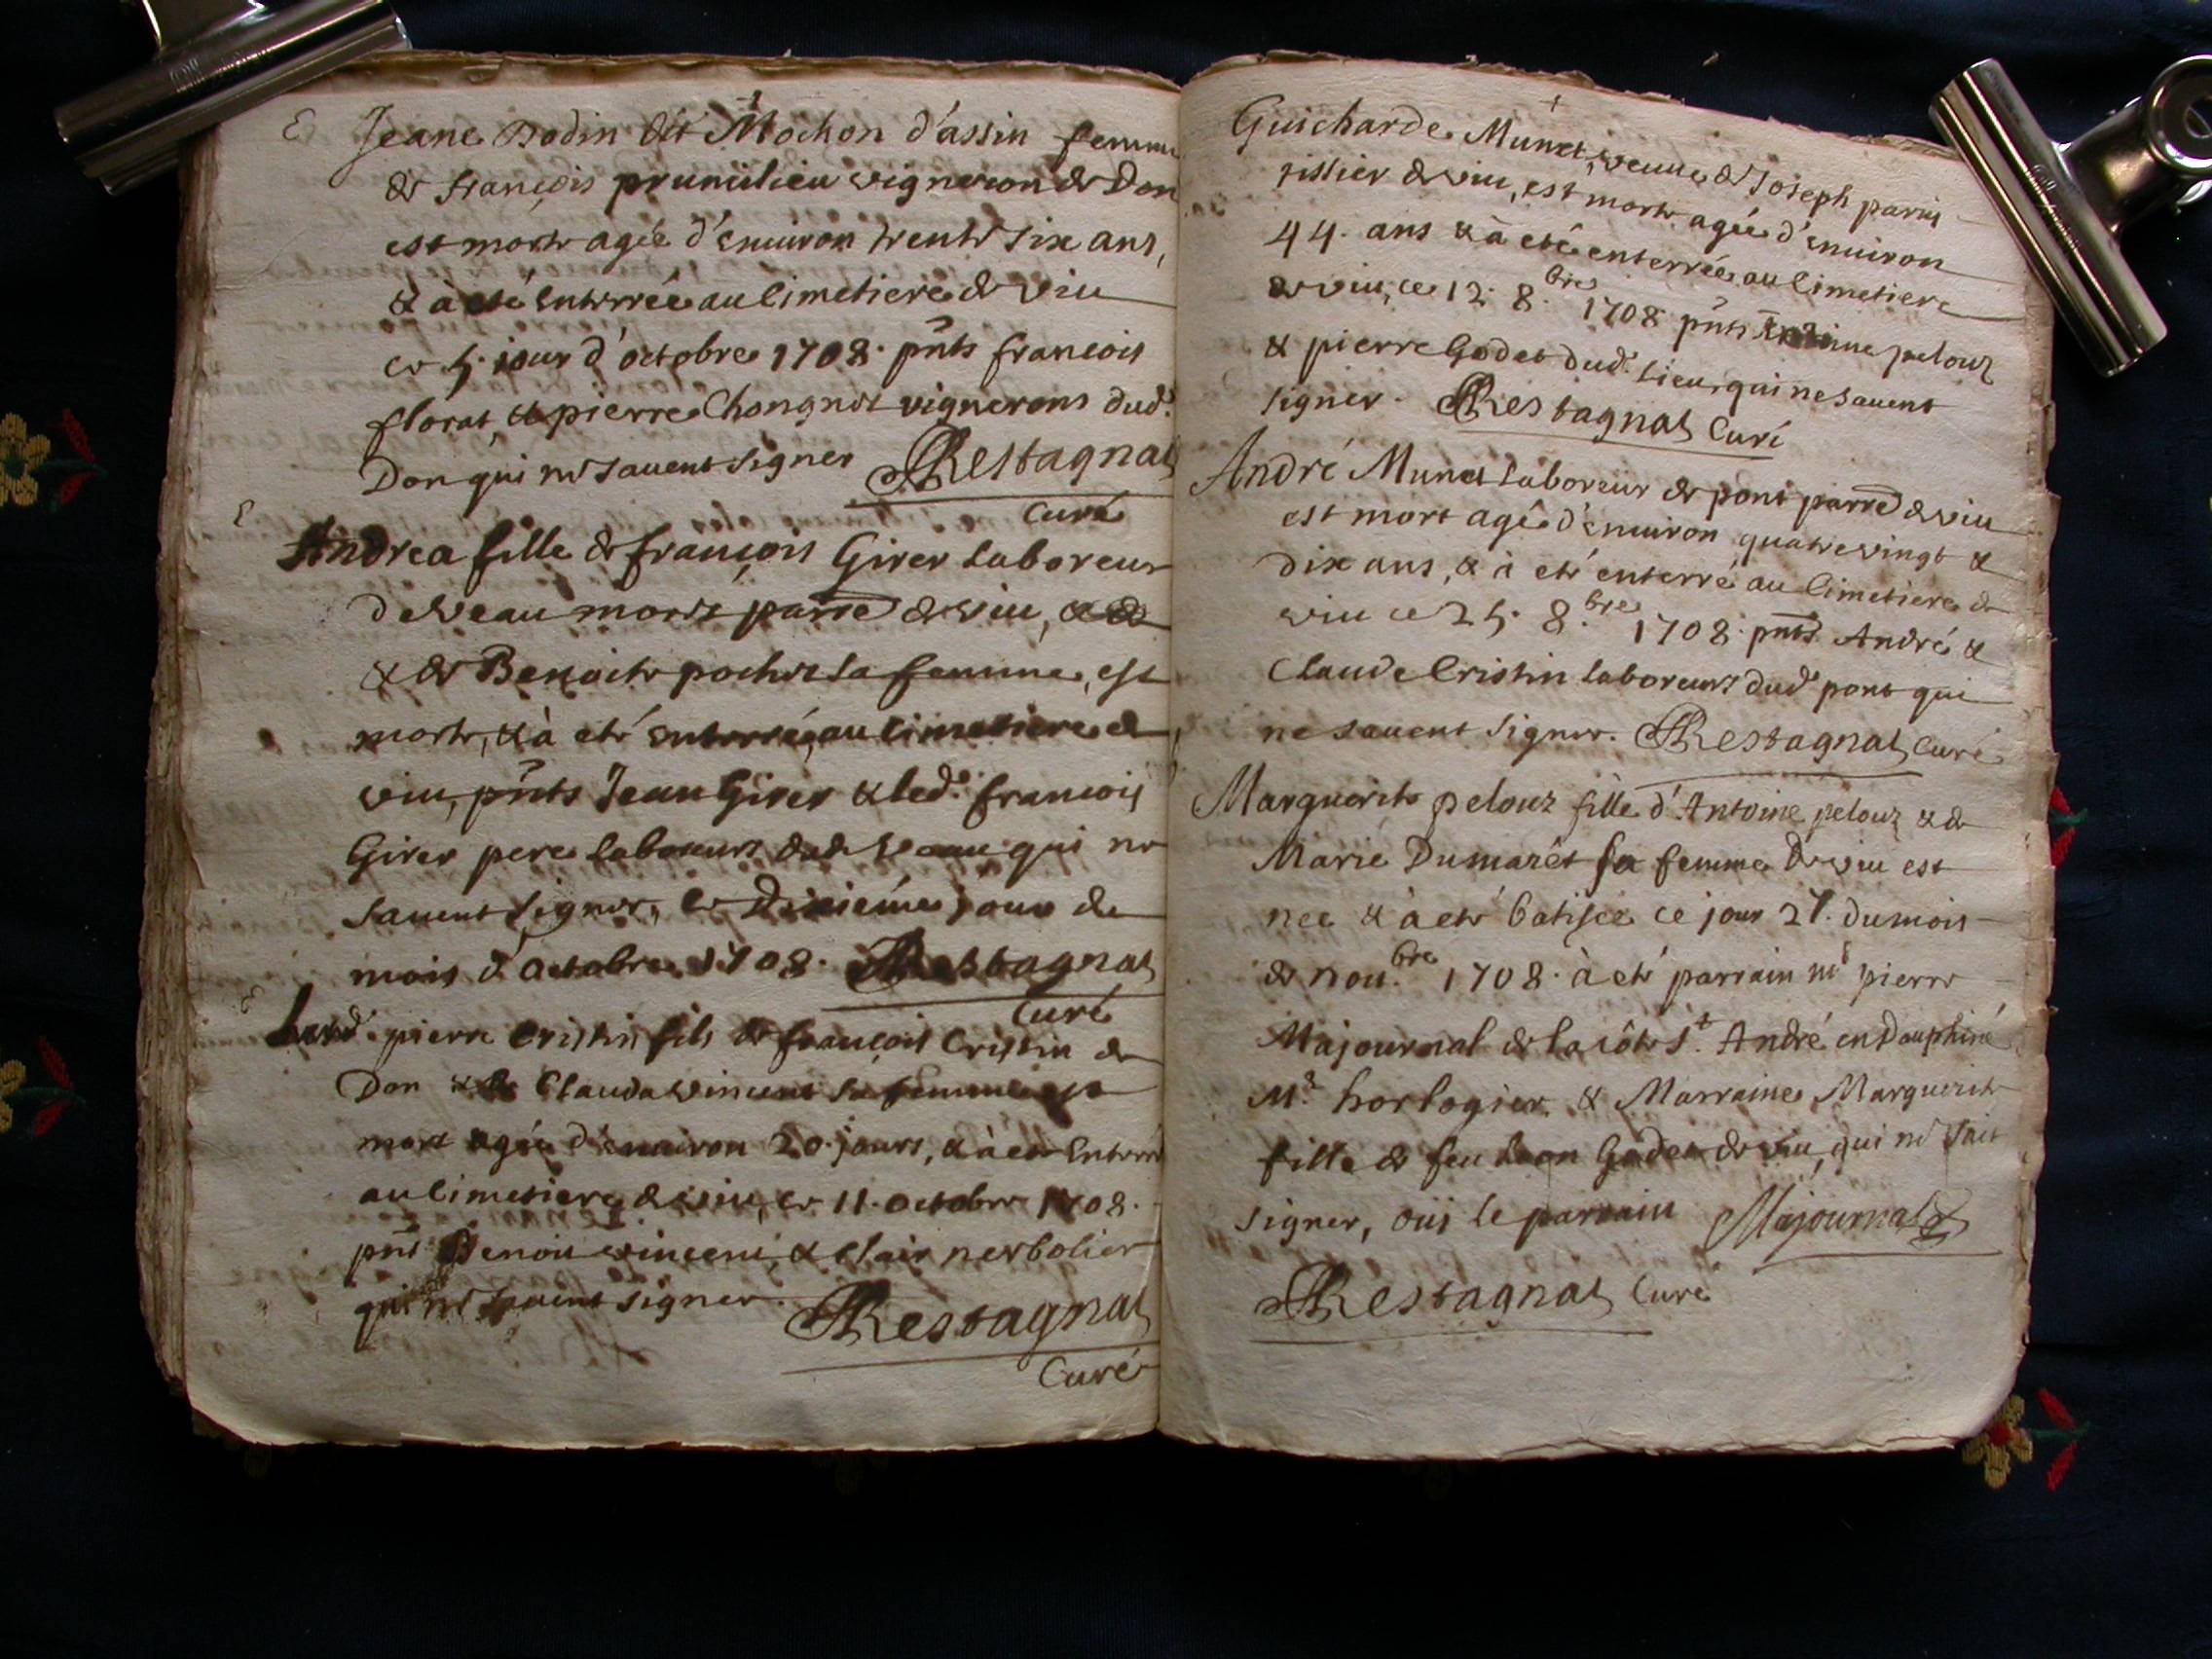 Jeane Bodin dit Mochon d'assin femme
de françois prumilieu vigneron de Don
est morte agée d'enuiron trente six ans,
& à eté enterrée au Cimetiere de viu
ce 5. jour d'octobre 1708. pnts francois
florat, & pierre Chongnot vignerons dud.
Don qui ne sauent signer Restagnat
Curé
Andrea fille de françois Girer laboreur
de Veau morte parre de viu,
& de Benoite pochet sa femme, est
morte, & à eté enterrée, au Cimetiere de
viu, pnts Jean Girer & led. francois
Girer pere laboreurs dud. Veau qui ne
sauent signer, le Dixiéme jour du
mois d'octobre 1708. Restagnat
Curé
pierre Cristin fils de françois Cristin de
Don & de Clauda Vincent sa femme est
mort agée d'enuiron 20. jours, & à eté enterré
au Cimetiere de viu, ce 11. octobre 1708.
pnt Benoit vincent, & Clair nerbolier
qui ne sauent signer. Restagnat
Curé
Guicharde Munet, veuue de Joseph paris
tissier de viu, est morte agée d'enuiron
44. ans & à eté enterrée au Cimetiere
de viu, ce 12. 8.bre 1708 pnts pelouz
& pierre Godet dud. lieu, qui ne sauent
signer. Restagnat Curé
André Munet laboreur de pont parre de viu
est mort agé d'enuiron quatre vingt &
dix ans, & à eté enterré au Cimetiere de
viu ce 25. 8.bre 1708. pnts André &
Claude Cristin laboreurs dud. pont qui
ne sauent signer. Restagnat Curé
Marguerite pelouz fille d'Antoine pelouz & de
Marie Dumarêt sa femme de viu est
nee & à eté batisée ce jour 27. du mois
de nou.bre 1708. à eté parrain mr pierre
Majournal de la côte St. André en Dauphiné
Me horlogier, & Marraine Marguerite
fille de feu Leon Godet de viu, qui ne sait
signer, oui le parrain Majournal
Restagnat Curé